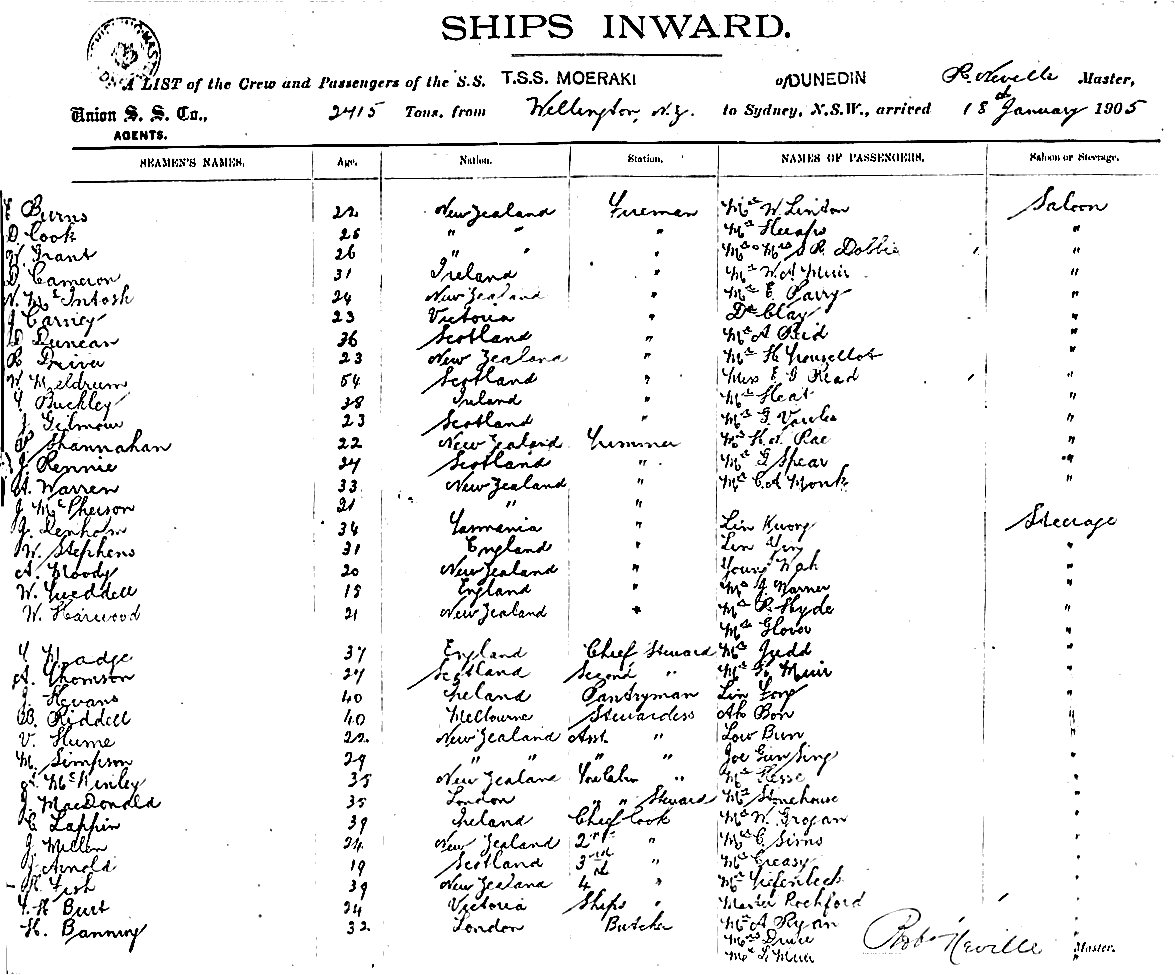 SHIPS INWARD.
A LIST of the Crew and Passengers of the S.S. T.S.S. MOERAKI of DUNEDIN R. Neville Master,
Union S. S. Co., 2415 Tons, from Wellington, N.Z. to Sydney, N.S.W., arrived 18th January 1905
AGENTS.
SEAMEN'S NAMES. Age. Nation. Station. NAMES OF PASSENGERS. Saloon or Steerage.
Burns 22 New Zealand Fireman Mr W. Linton Saloon
D Cook 25 " " " Mr Heaps "
W. Grant 26 " " " Mr & Mrs S R. Dobbie "
D. Cameron 31 Ireland " Mr W. A Muir "
N. McIntosh 24 New Zealand " Mr E. Parry "
J Carney 23 Victoria " Dr Clay "
D Duncan 36 Scotland " Mr A Reid "
R Driver 23 New Zealand " Mr H "
W Meldrum 54 Scotland " Miss E G Read "
Buckley 38 Ireland " Mr Heat "
J. Gilmour 23 Scotland " Mr G. "
P Shannahan 22 New Zealand Trimmer Mr H. A. Rae "
J. Rennie 24 Scotland " Mr G Spear "
A. Warren 33 New Zealand " Mr C. A Monk "
J McPherson 21 " "
J. Denholm 34 Tasmania " Lin Kwong Steerage
W. Stephens 31 England " Lin Yin "
A. Moody 20 New Zealand " Young Wah "
W. Tweddell 18 England " Mr J Warner "
W. Harwood 21 New Zealand " Mr R. Hyde "
Mr Glover "
37 England Chief Steward Mr Judd "
A. Thomson 27 Scotland Second " Mr Muir "
J Hevans 40 Ireland Pantryman Lin "
B. Riddell 40 Melbourne Stewardess Ah Bon "
V. Hume 22 New Zealand Asst. " Low Bun "
M. Simpson 29 " " " Joe Gun Sing "
McKinley 35 New Zealand " Mr Hesse "
J. MacDonald 35 London " " Steward Mr Stonehouse "
C Lappin 39 Ireland Chief Cook Mr W. Grogan "
J Millen 24 New Zealand 2nd " Mr C. Sims "
J Arnold 19 Scotland 3rd " Mr Creasy "
Fish 39 New Zealand 4th " Mr Tiefenbeck "
H Burt 24 Victoria Ships " Master Rochford "
H. Banning 32 London Butcher Mr A Ryan "
Mrs
Mr Muir
Robt Neville Master.